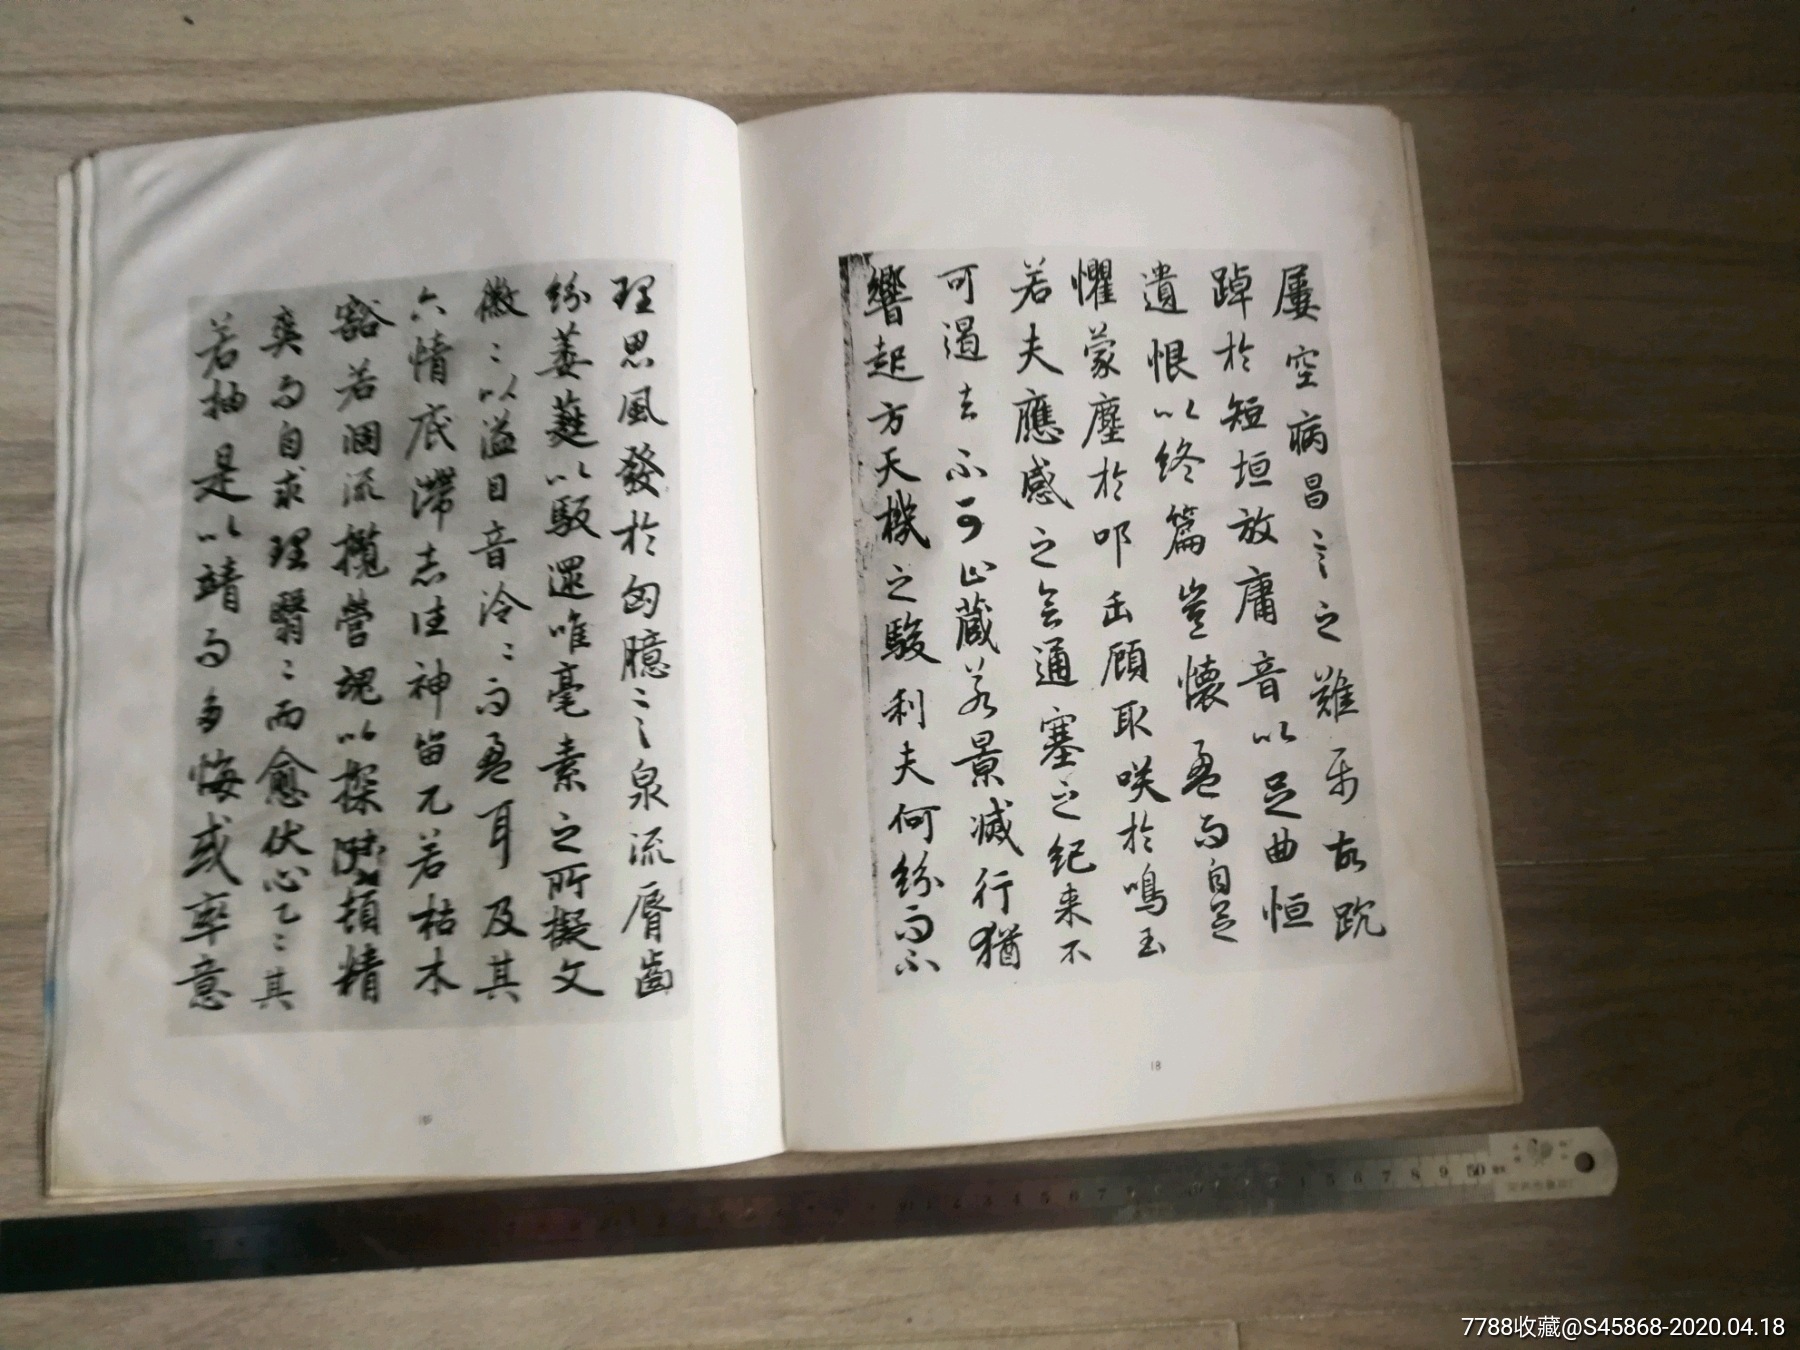 屢空病昌言之難屬故踸
踔於短垣放庸音以足曲恒
遺恨以終篇豈懷盈而自足
懼蒙塵於叩缶顧取咲於鳴玉
若夫應感之會通塞之紀来不
可遏去不可止藏若景滅行猶
響起方天機之駿利夫何紛而不
18
理思風發於匈臆言泉流脣齒
紛葳蕤以馺遝唯毫素之所擬文
徽〻以溢目音泠〻而盈耳及其
六情底滯志往神留兀若枯木
豁若涸流攬營魂以探賾頓精
爽而自求理翳〻而愈伏心乙〻其
若抽是以竭而多悔或率意
7788收藏@S45868-2020.04.18